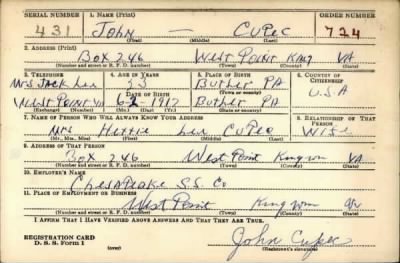 SERIAL NUMBER 1. NAME (Print) ORDER NUMBER
431 John — Cupec 724
(First) (Middle) (Last)
2. ADDRESS (Print)
Box 246 West Point King VA
(Number and street or R. F. D. number) (Town) (County) (State)
3. TELEPHONE 4. AGE IN YEARS 5. PLACE OF BIRTH 6. COUNTRY OF CITIZENSHIP
Mrs Jack Lee 23 Butler PA
(Town or county)
DATE OF BIRTH U.S.A
West Point 6-2-1917 Butler PA
(Exchange) (Number) (Mo.) (Day) (Yr.) (State or country)
7. NAME OF PERSON WHO WILL ALWAYS KNOW YOUR ADDRESS 8. RELATIONSHIP OF THAT PERSON
Mrs Hettie Lee Cupec Wife
(Mr., Mrs., Miss) (First) (Middle) (Last)
9. ADDRESS OF THAT PERSON
Box 246 West Point King Wm VA
(Number and street or R. F. D. number) (Town) (County) (State)
10. EMPLOYER'S NAME
Chesapeake S.S. Co
11. PLACE OF EMPLOYMENT OR BUSINESS
West Point King Wm Va
(Number and street or R. F. D. number) (Town) (County) (State)
I AFFIRM THAT I HAVE VERIFIED ABOVE ANSWERS AND THAT THEY ARE TRUE.
REGISTRATION CARD John Cupec
D. S. S. Form 1 (over) (Registrant's signature)